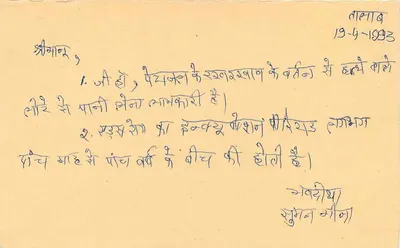 तालाब
19-4-1993
श्रीमान्,
1. जी हाँ, पेयजल के रखरखाव के बर्तन से हत्थे वाले
लोटे से पानी लेना लाभकारी है।
2. एड्स रोग का इन्क्यूबेशन पीरियड लगभग
पांच माह से पांच वर्ष के बीच की होती है।
भवदीया
सुमन मीना